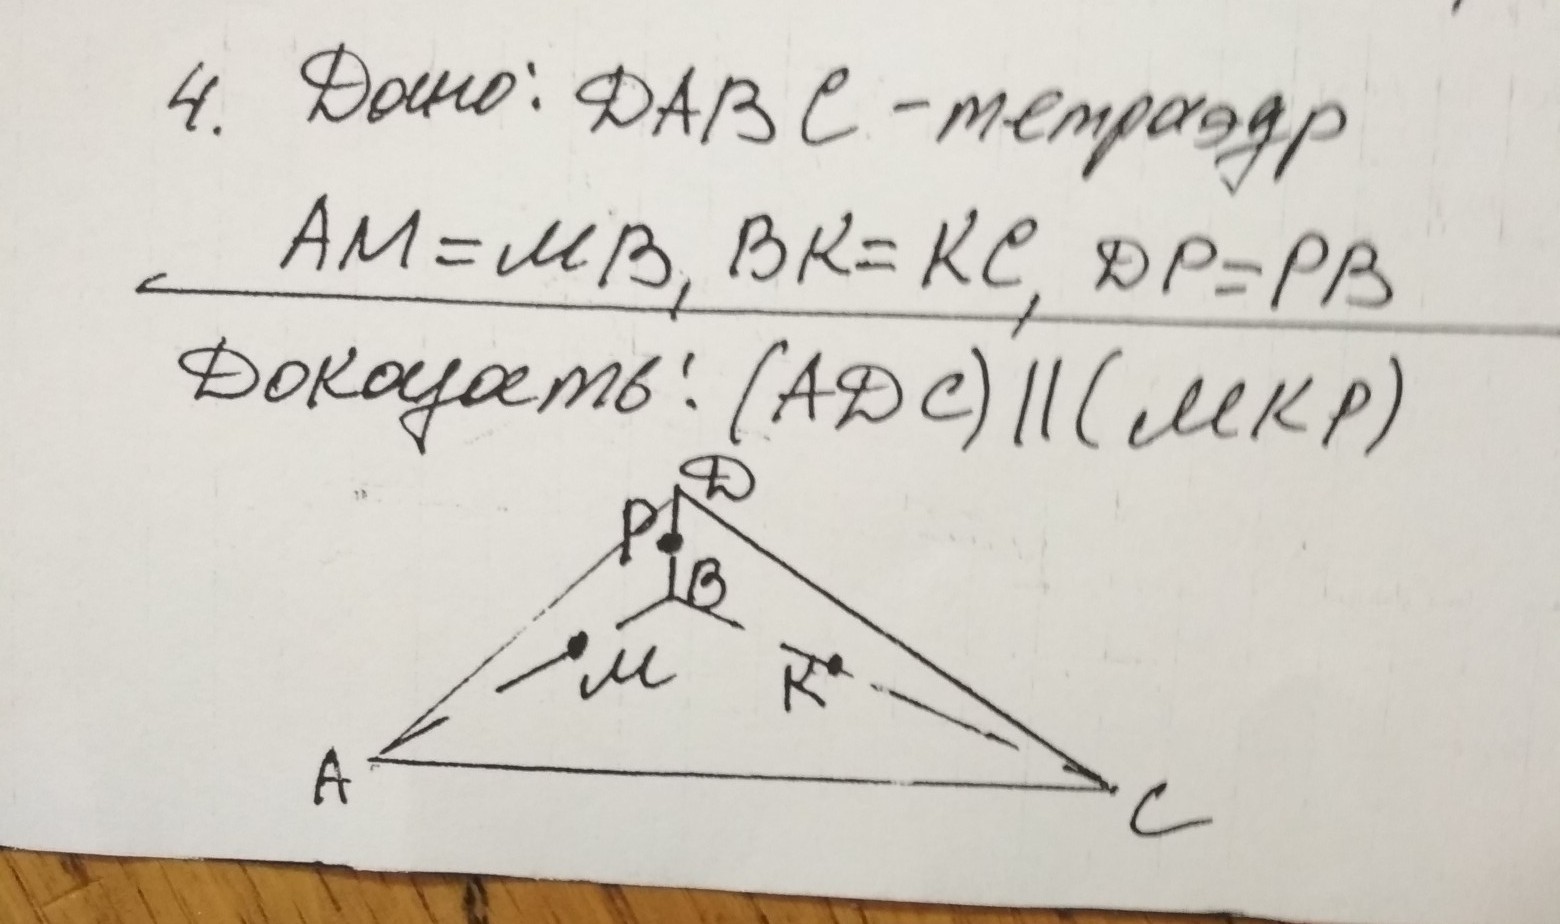 4. Дано: DABC - тетраэдр
AM = MB, BK = KC, DP = PB
Доказать: (ADC) || (MKP)
D
P
B
M
K
A
C